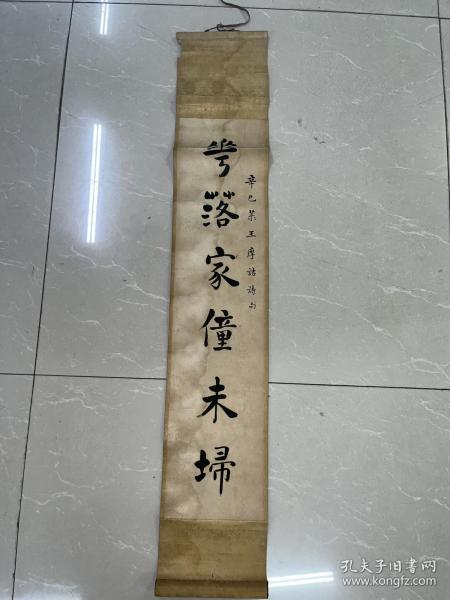 辛巳王摩詰詩句
落家僮未埽
孔夫子旧书网
www.kongfz.com